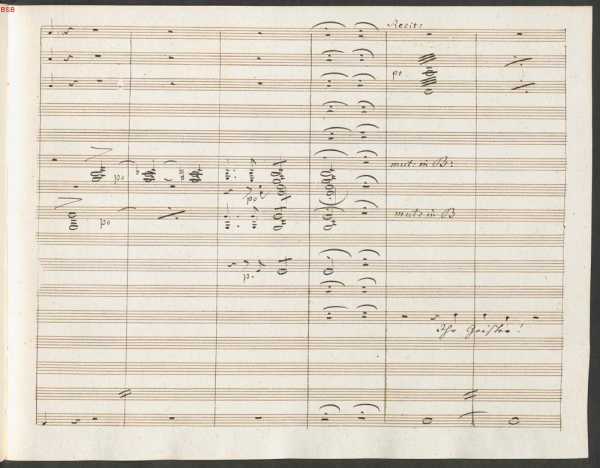 BSB
Recit:
po
mut: in B:
po
po
po
mut: in B
p.
Ihr Geister!